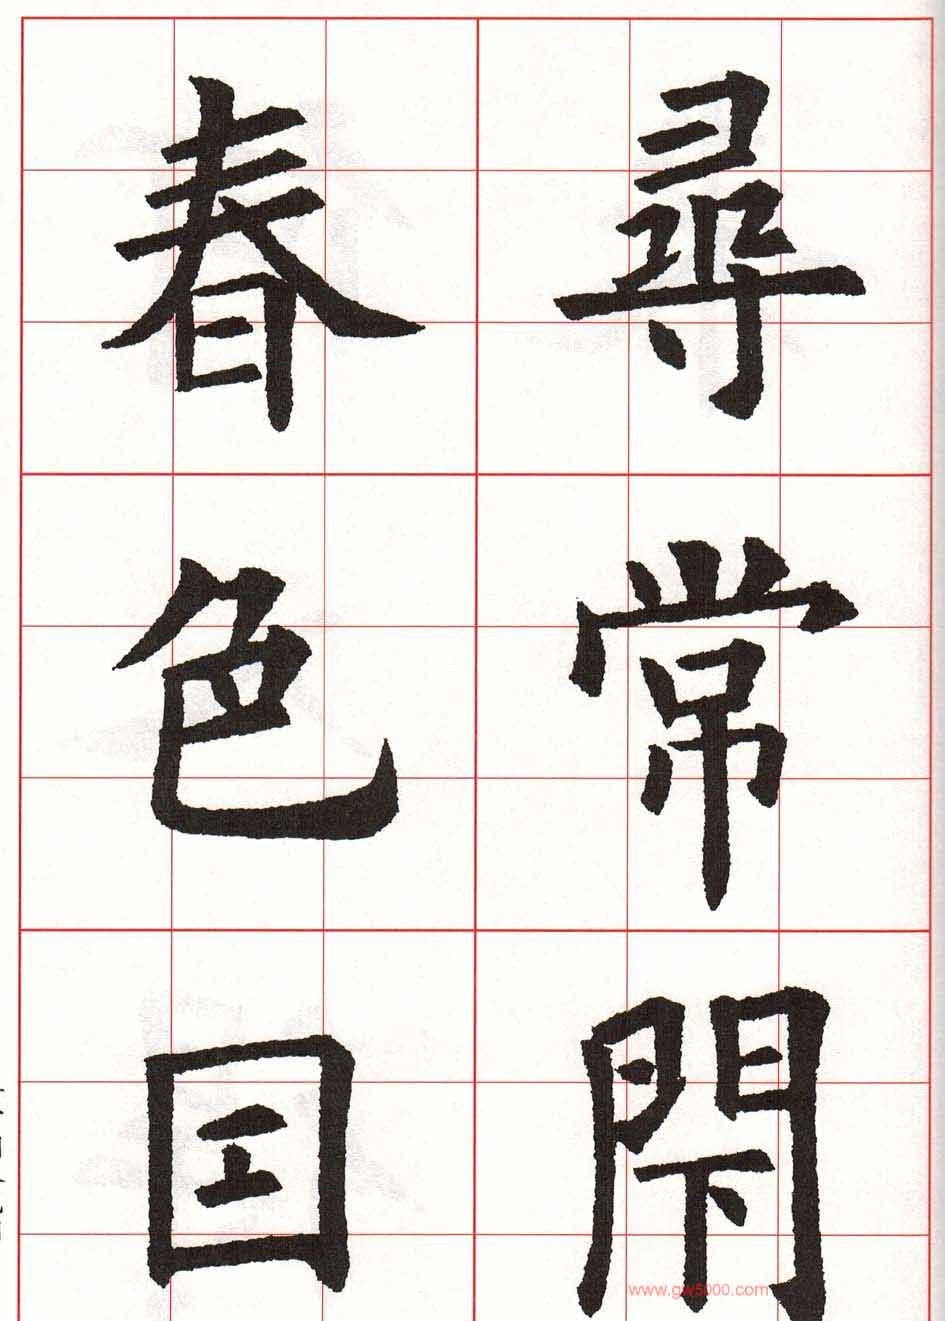 尋常閇
春色囯
www.gw5000.com